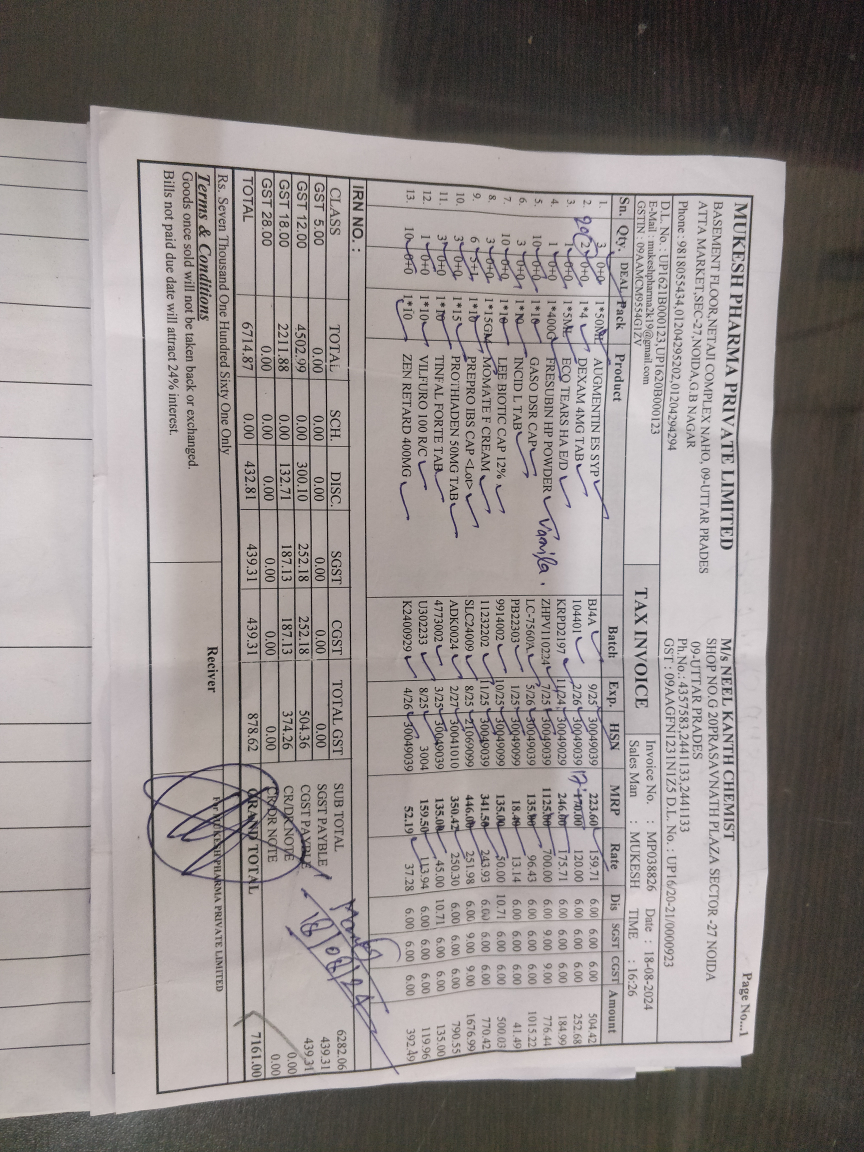 Page No...1
MUKESH PHARMA PRIVATE LIMITED
BASEMENT FLOOR,NETAJI COMPLEX NAHO, 09-UTTAR PRADES
ATTA MARKET,SEC-27,NOIDA,G.B NAGAR
Phone : 9818055434,01204295202,01204294294
D.L. No. : UP1621B000123,UP1620B000123
E-Mail : mukeshpharma2k19@gmail.com
GSTIN : 09AAMCM9554G1ZV
TAX INVOICE
M/s NEEL KANTH CHEMIST
SHOP NO.G 20PRASAVNATH PLAZA SECTOR -27 NOIDA
09-UTTAR PRADES
Ph.No.: 4357583,2441133,2441133
GST : 09AAGFN1231N1Z5 D.L. No. : UP16/20-21/0000923
Invoice No. : MP038826 Date : 18-08-2024
Sales Man : MUKESH TIME : 16:26
Sn. Qty. DEAL Pack Product Batch Exp. HSN MRP Rate Dis SGST CGST Amount
1. 3 0+0 1*50ML AUGMENTIN ES SYP BJ4A 9/25 30049039 223.60 159.71 6.00 6.00 6.00 504.42
2. 20 2 0+0 1*4 DEXAM 4MG TAB 104401 2/26 30049039 170.00 120.00 6.00 6.00 6.00 252.68
3. 1 0+0 1*5ML ECO TEARS HA E/D KRPD2197 11/24 30049029 246.00 175.71 6.00 6.00 6.00 184.99
4. 1 0+0 1*400G FRESUBIN HP POWDER Vanilla. ZHPV110224 7/25 30049039 1125.00 700.00 6.00 9.00 9.00 776.44
5. 10 0+0 1*10 GASO DSR CAP LC-7560A 5/26 30049039 135.00 96.43 6.00 6.00 6.00 1015.22
6. 3 0+0 INCID L TAB PB22303 1/25 30049099 18.40 13.14 6.00 6.00 6.00 41.49
7. 10 0+0 1*10 LEE BIOTIC CAP 12% 9914002 10/25 30049099 135.00 50.00 10.71 6.00 6.00 500.03
8. 3 0+0 1*15GM MOMATE F CREAM 11232202 11/25 30049039 341.50 243.93 6.00 6.00 6.00 770.42
9. 6 5+1 1*10 PREPRO IBS CAP <Lot> SLC24009 8/25 21069099 446.00 251.98 6.00 9.00 9.00 1676.99
10. 3 0+0 1*15 PROTHIADEN 50MG TAB ADK0024 2/27 30041010 350.42 250.30 6.00 6.00 6.00 790.55
11. 3 0+0 1*10 TINFAL FORTE TAB 4773002 3/25 30049039 135.00 45.00 10.71 6.00 6.00 135.00
12. 1 0+0 1*10 VILFURO 100 R/C U302233 8/25 3004 159.50 113.94 6.00 6.00 6.00 119.96
13. 10 0+0 1*10 ZEN RETARD 400MG K2400929 4/26 30049039 52.19 37.28 6.00 6.00 6.00 392.49
IRN NO. :
CLASS TOTAL SCH. DISC. SGST CGST TOTAL GST
GST 5.00 0.00 0.00 0.00 0.00 0.00 0.00
GST 12.00 4502.99 0.00 300.10 252.18 252.18 504.36
GST 18.00 2211.88 0.00 132.71 187.13 187.13 374.26
GST 28.00 0.00 0.00 0.00 0.00 0.00 0.00
TOTAL 6714.87 0.00 432.81 439.31 439.31 878.62
SUB TOTAL 6282.06
SGST PAYBLE 439.31
CGST PAYBLE 439.31
CR/DR NOTE 0.00
CR/DR NOTE 0.00
GRAND TOTAL 7161.00
18/08/24
Rs. Seven Thousand One Hundred Sixty One Only
Terms & Conditions
Goods once sold will not be taken back or exchanged.
Bills not paid due date will attract 24% interest.
Reciver
For MUKESH PHARMA PRIVATE LIMITED